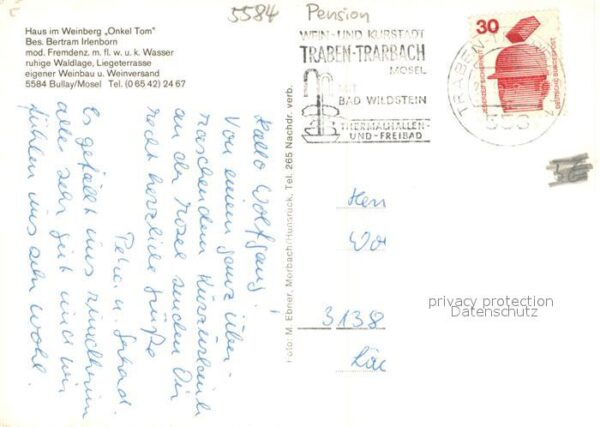 5584
Pension
Haus im Weinberg „Onkel Tom"
Bes. Bertram Irlenborn
mod. Fremdenz. m. fl. w. u. k. Wasser
ruhige Waldlage, Liegeterrasse
eigener Weinbau u. Weinversand
5584 Bullay/Mosel Tel. (0 65 42) 24 67
WEIN- UND KURSTADT
TRABEN-TRARBACH
MOSEL
MIT
BAD WILDSTEIN
THERMALHALLEN-
UND-FREIBAD
30
DEUTSCHE BUNDESPOST
TRABEN-T
Hallo Wolfgang!
Von einem ganz über-
raschenden Kurzurlaub
an der Mosel senden Dir
recht herzliche Grüße
Petra u. Gerhard.
Es gefällt uns rundherum
alles sehr gut und wir
fühlen uns sehr wohl.
Foto: M. Ebner, Morbach/Hunsrück, Tel. 265 Nachdr. verb.
Herr
Wo
3138
privacy protection
Datenschutz